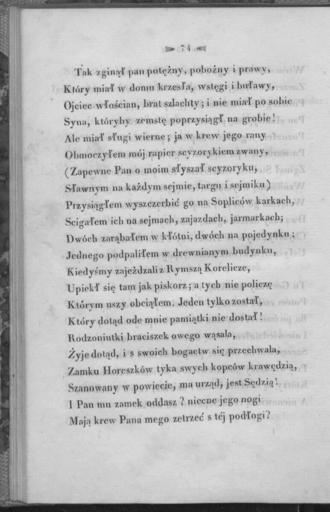 74
Tak zginął pan potężny, pobożny i prawy,
Który miał w domu krzesła, wstęgi i buławy,
Ojciec włościan, brat szlachty; i nie miał po sobie
Syna, któryby zemstę poprzysiągł na grobie!
Ale miał sługi wierne; ja w krew jego rany
Obmoczyłem mój rapier scyzorykiem zwany,
(Zapewne Pan o moim słyszał scyzoryku,
Sławnym na każdym sejmie, targu i sejmiku)
Przysiągłem wyszczerbić go na Sopliców karkach,
Scigałem ich na sejmach, zajazdach, jarmarkach;
Dwóch zarąbałem w kłótni, dwóch na pojedynku;
Jednego podpaliłem w drewnianym budynku,
Kiedyśmy zajeżdzali z Rymszą Korelicze,
Upiekł się tam jak piskorz; a tych nie policzę
Którym uszy obciąłem. Jeden tylko został,
Który dotąd ode mnie pamiątki nie dostał!
Rodzoniutki braciszek owego wąsala,
Żyje dotąd, i s swoich bogactw się przechwala,
Zamku Horeszków tyka swych kopców krawędzią,
Szanowany w powiecie, ma urząd, jest Sędzią!
I Pan mu zamek oddasz? niecne jego nogi
Mają krew Pana mego zetrzeć s téj podłogi?